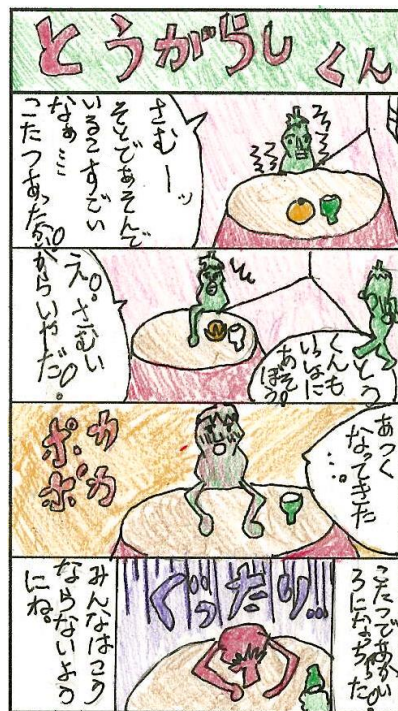 とうがらしくん
さむーッ
そとであそんで
いるこすごい
なぁミミ
こたつあったか。
とう
くんも
いっしょに
あそぼう。
え。さむい
からいやだ。
あつく
なってきた
…。
ポカ
ポカ
こたつであかい
ろになっちゃった。
ぐったり!!!
みんなはこう
ならないよう
にね。